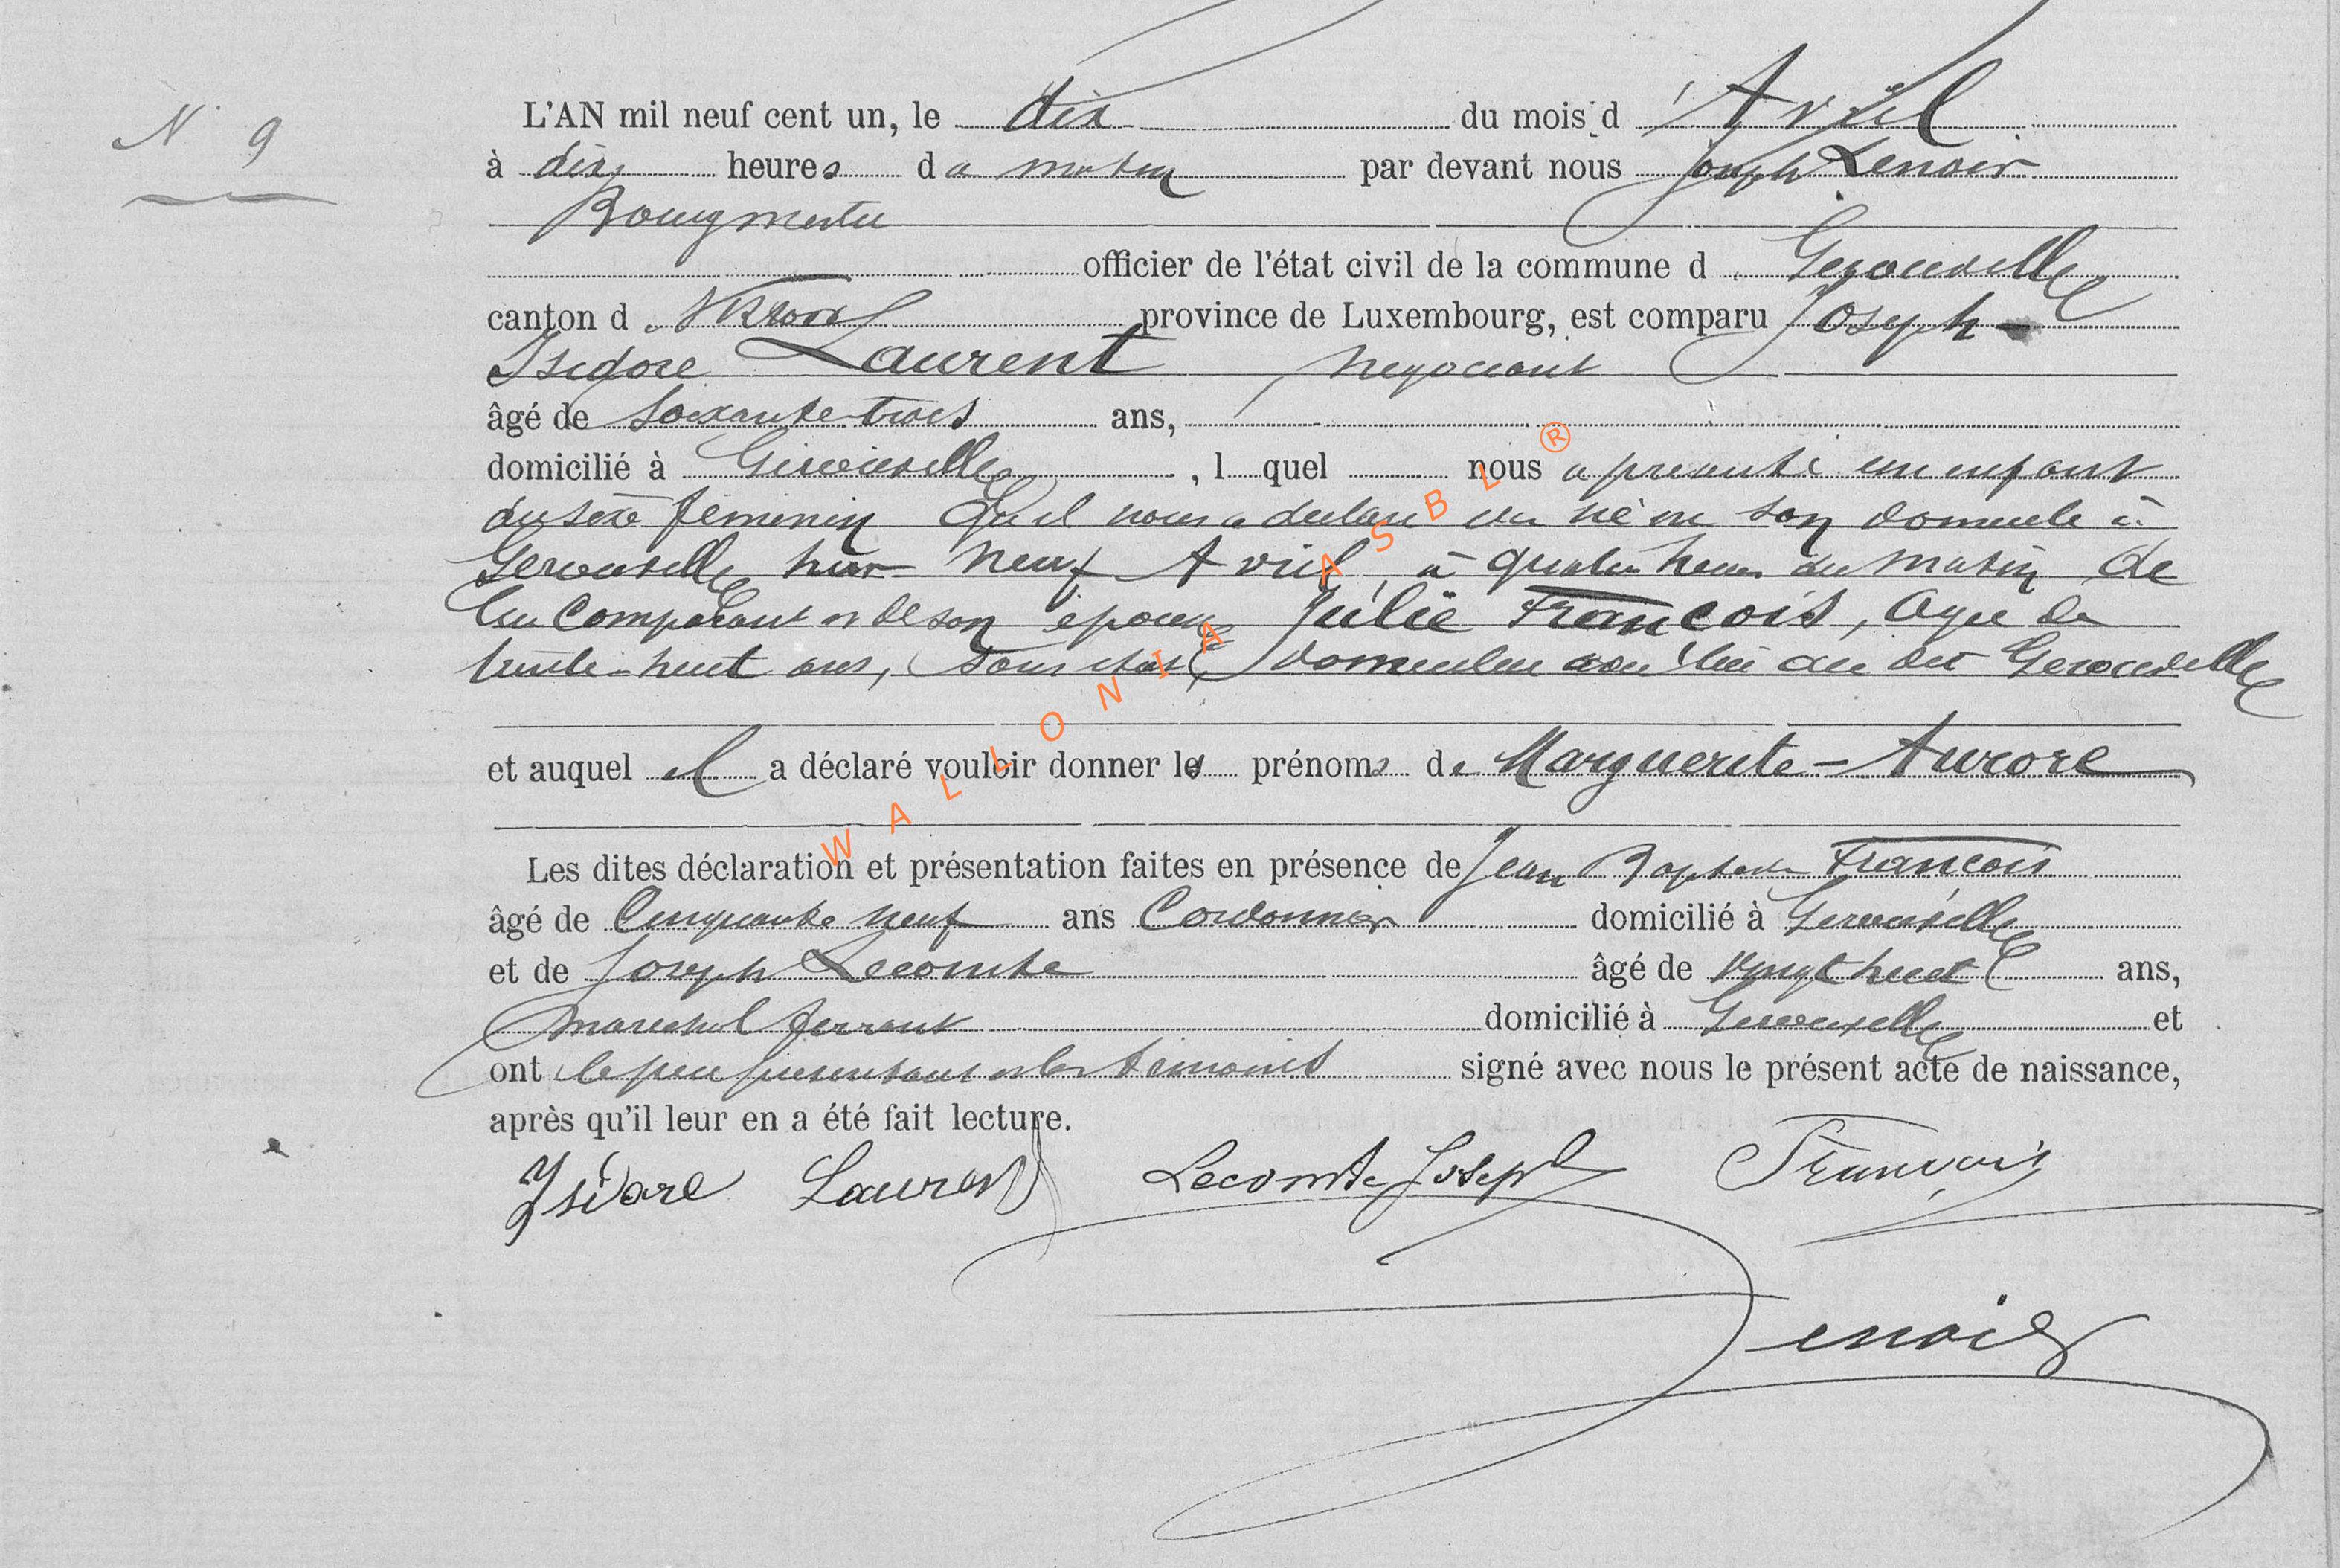 N° 9
L'AN mil neuf cent un, le dix du mois d'Avril
à dix heures du matin par devant nous Joseph Lenoir
Bourgmestre
officier de l'état civil de la commune de Gerouville
canton de Virton province de Luxembourg, est comparu Joseph-
Isidore Laurent négociant
âgé de soixante-trois ans,
domicilié à Gerouville, lequel nous a présenté un enfant
du sexe féminin qu'il nous a déclaré né en son domicile à
Gerouville hier neuf Avril, à quatre heures du matin de
lui comparant et de son épouse Julie François, agée de
trente-huit ans, sans état, domiciliée avec lui au dit Gerouville
et auquel il a déclaré vouloir donner les prénoms de Marguerite-Aurore
Les dites déclaration et présentation faites en présence de Jean Baptiste François
âgé de Cinquante neuf ans Cordonnier domicilié à Gerouville
et de Joseph Lecomte âgé de vingt huit ans,
maréchal ferrant domicilié à Gerouville et
ont le père présentant et les témoins signé avec nous le présent acte de naissance,
après qu'il leur en a été fait lecture.
Isidore Laurent Lecomte Joseph François
Lenoir
WALLONIA ASBL ®